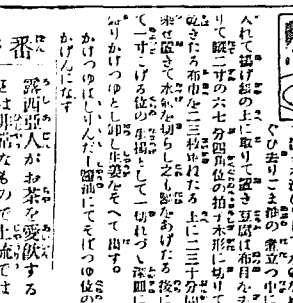 ぐひ去りごま油の煮立つ中に
入れて揚げ紙の上に取りて置き豆腐は布目を
りて竪二寸の六七分四角位の拍子木形に切りて
乾きたる布巾を二三枚重ねたる上に二三十分間
乗せ置きて水氣を切らし之もあげたる後に
て一寸こげる位の生揚として一切れづゝ深皿に
盛りかけつゆとし卸し生姜をそへて出す。
かけつゆはしりんだし醬油にてそばつゆ位の
かげんになす
番
露西亞人がお茶を愛飮する
は非常なもので上流では